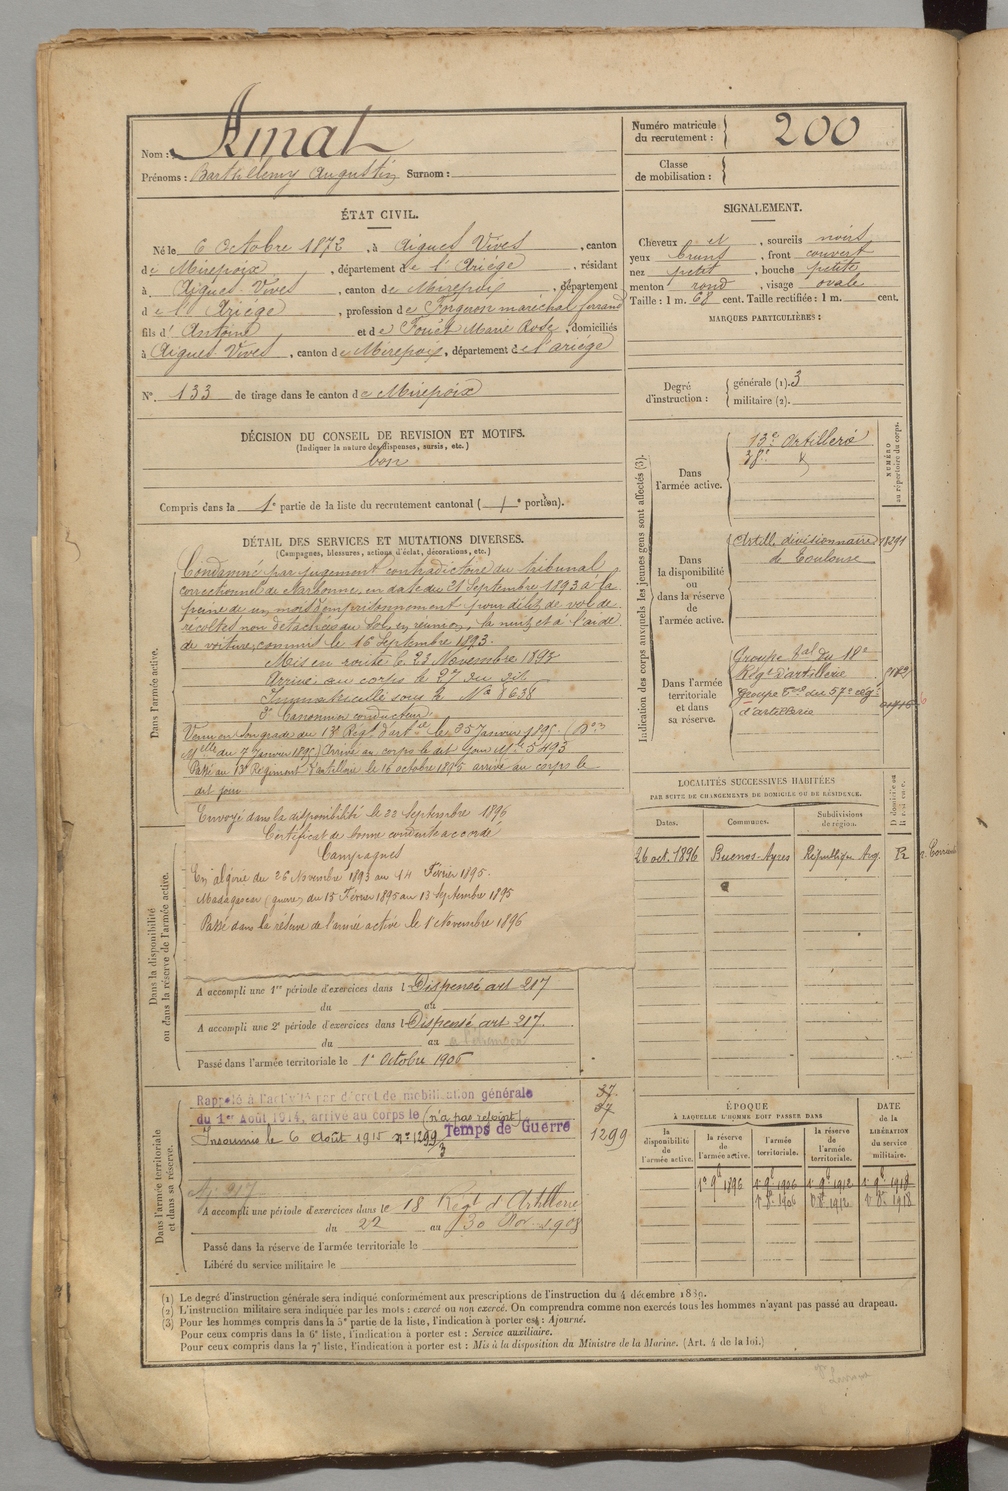 Nom : Amat
Prénoms : Barthélemy Augustin Surnom :
Numéro matricule du recrutement : 200
Classe de mobilisation :
ÉTAT CIVIL.
Né le 6 Octobre 1872, à Aigues Vives, canton
de Mirepoix, département de l'Ariége, résidant
à Aigues-Vives, canton de Mirepoix, département
de l'Ariége, profession de Forgeron maréchal ferrand
fils d' Antoine et de Fouet Marie Rose, domiciliés
à Aigues-Vives, canton de Mirepoix, département de l'ariége
N° 133 de tirage dans le canton de Mirepoix
DÉCISION DU CONSEIL DE REVISION ET MOTIFS.
(Indiquer la nature des dispenses, sursis, etc.)
bon
Compris dans la 1e partie de la liste du recrutement cantonal ( 1e portion).
SIGNALEMENT.
Cheveux et, sourcils noirs
yeux bruns, front couvert
nez petit, bouche petite
menton rond, visage ovale
Taille : 1 m. 68 cent. Taille rectifiée : 1 m. cent.
MARQUES PARTICULIÈRES :
Degré d'instruction : générale (1). 3
militaire (2).
DÉTAIL DES SERVICES ET MUTATIONS DIVERSES.
(Campagnes, blessures, actions d'éclat, décorations, etc.)
Dans l'armée active.
Condamné par jugement contradictoire du tribunal
correctionnel de Narbonne, en date du 21 Septembre 1893 à la
peine de un mois d'emprisonnement pour délit de vol de
récoltes non détachées du sol, en réunion, la nuit et à l'aide
de voiture, commis le 16 Septembre 1893.
Mis en route le 23 Novembre 1893
Arrivé au corps le 27 du dit
Immatriculé sous le No 8638
2e Canonnier conducteur
Venu en son grade du 13e Régt d'artie le 25 Janvier 1895
Mlle du 7 Janvier 1895) Arrivé au corps le dit jour No 5493
Passé au 13e Régiment d'artillerie le 16 octobre 1895 arrivé au corps le
dit jour
Envoyé dans la disponibilité le 22 Septembre 1896
Certificat de bonne conduite accordé
Campagnes
En algérie du 26 Novembre 1893 au 14 Février 1895.
Madagascar (guerre) du 15 Février 1895 au 13 Septembre 1895
Passé dans la réserve de l'armée active le 1 Novembre 1896
Dans la disponibilité ou dans la réserve de l'armée active.
A accompli une 1re période d'exercices dans l Dispensé art 217
du au
A accompli une 2e période d'exercices dans l Dispensé art 217.
du au à l'étranger
Passé dans l'armée territoriale le 1er Octobre 1906
Dans l'armée territoriale et dans sa réserve.
Rappelé à l'activité par décret de mobilisation générale
du 1er Août 1914, arrivé au corps le (n'a pas rejoint)
Insoumis le 6 Août 1915 n° 1299/3 Temps de Guerre
37
37
1299
Aj. 217
A accompli une période d'exercices dans le 18 Régt d'Artillerie
du 22 au 30 Nov. 1908
Passé dans la réserve de l'armée territoriale le
Libéré du service militaire le
Indication des corps auxquels les jeunes gens sont affectés (3).
NUMÉRO au répertoire du corps.
Dans l'armée active.
13e Artillerie
38e
Dans la disponibilité ou dans la réserve de l'armée active.
Artill. divisionnaire
de Toulouse
Dans l'armée territoriale et dans sa réserve.
Groupe tal du 18e
Régt d'artillerie
d'artillerie
LOCALITÉS SUCCESSIVES HABITÉES
PAR SUITE DE CHANGEMENTS DE DOMICILE OU DE RÉSIDENCE.
Dates. Communes. Subdivisions de région. D domicile ou R résidence.
26 oct. 1896 Buenos-Ayres République Arg. R
ÉPOQUE
À LAQUELLE L'HOMME DOIT PASSER DANS
DATE de la LIBÉRATION du service militaire.
la disponibilité de l'armée active. la réserve de l'armée active. l'armée territoriale. la réserve de l'armée territoriale.
1er 9bre 1896 1 9bre 1906 1 9bre 1912 1 9bre 1918
1 8bre 1906 1 8bre 1912 1 8bre 1918
(1) Le degré d'instruction générale sera indiqué conformément aux prescriptions de l'instruction du 4 décembre 1889.
(2) L'instruction militaire sera indiquée par les mots : exercé ou non exercé. On comprendra comme non exercés tous les hommes n'ayant pas passé au drapeau.
(3) Pour les hommes compris dans la 5e partie de la liste, l'indication à porter est : Ajourné.
Pour ceux compris dans la 6e liste, l'indication à porter est : Service auxiliaire.
Pour ceux compris dans la 7e liste, l'indication à porter est : Mis à la disposition du Ministre de la Marine. (Art. 4 de la loi.)